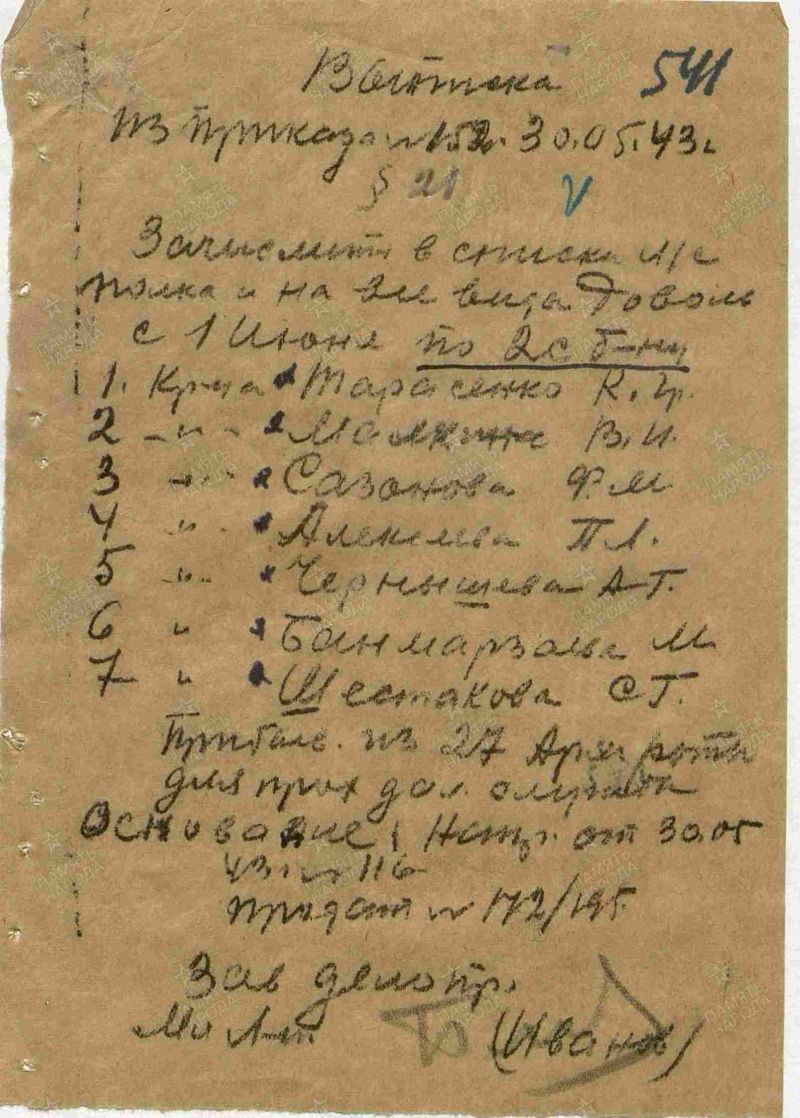 Выписка 541
Из приказа № 152. 30.05.43 г.
§ 21
Зачислить в списки л/с
полка и на все вида доволь
с 1 Июня по 2 с б-ну
1. Кр-ца Тарасенко К. Гр.
2 -"- Малкина В. И.
3 -"- Сазонова Ф. М
4 " Алексеева П Л.
5 " Чернышева А Г.
6 " Банмарзаева М
7 " Шестакова С Г.
Прибыв. из 27 роты
для прох дал. службы
Основание: Напр. от 30.05
43 г. № 116
Продат № 172/195
Зав делопр.
Мл Л-т (Иванов)
ПАМЯТЬ НАРОДА